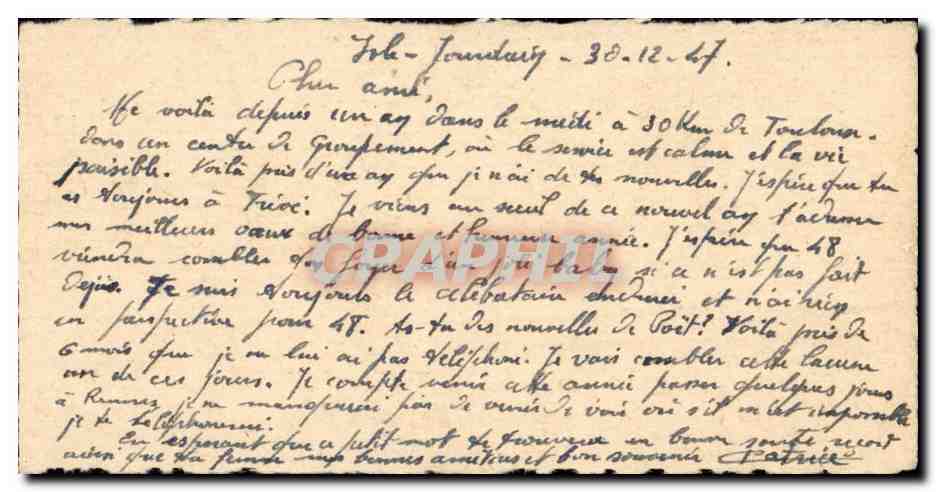 Isle-Jourdain - 30-12-47.
Cher ami,
Me voilà depuis un an dans le midi à 30 Km de Toulouse.
dans un centre de Groupement, où le service est calme et la vie
paisible. Voilà près d'un an que je n'ai de tes nouvelles. J'espère que tu
es toujours à Trévé. Je viens au seuil de ce nouvel an t'adresser
mes meilleurs vœux de bonne et heureuse année. J'espère que 48
viendra combler ton foyer d'un joli baby si ce n'est pas fait
déjà. Je suis toujours le célibataire endurci et n'ai rien
en perspective pour 48. As-tu des nouvelles de Poët? Voilà près de
6 mois que je ne lui ai pas téléphoné. Je vais combler cette lacune
un de ces jours. Je compte venir cette année passer quelques jours
à Rennes, je ne manquerai pas de venir te voir où s'il m'est impossible
je te téléphonerai.
En espérant que ce petit mot te trouvera en bonne santé reçois
ainsi que ta femme mes bonnes amitiés et bon souvenir
CPAPHIL